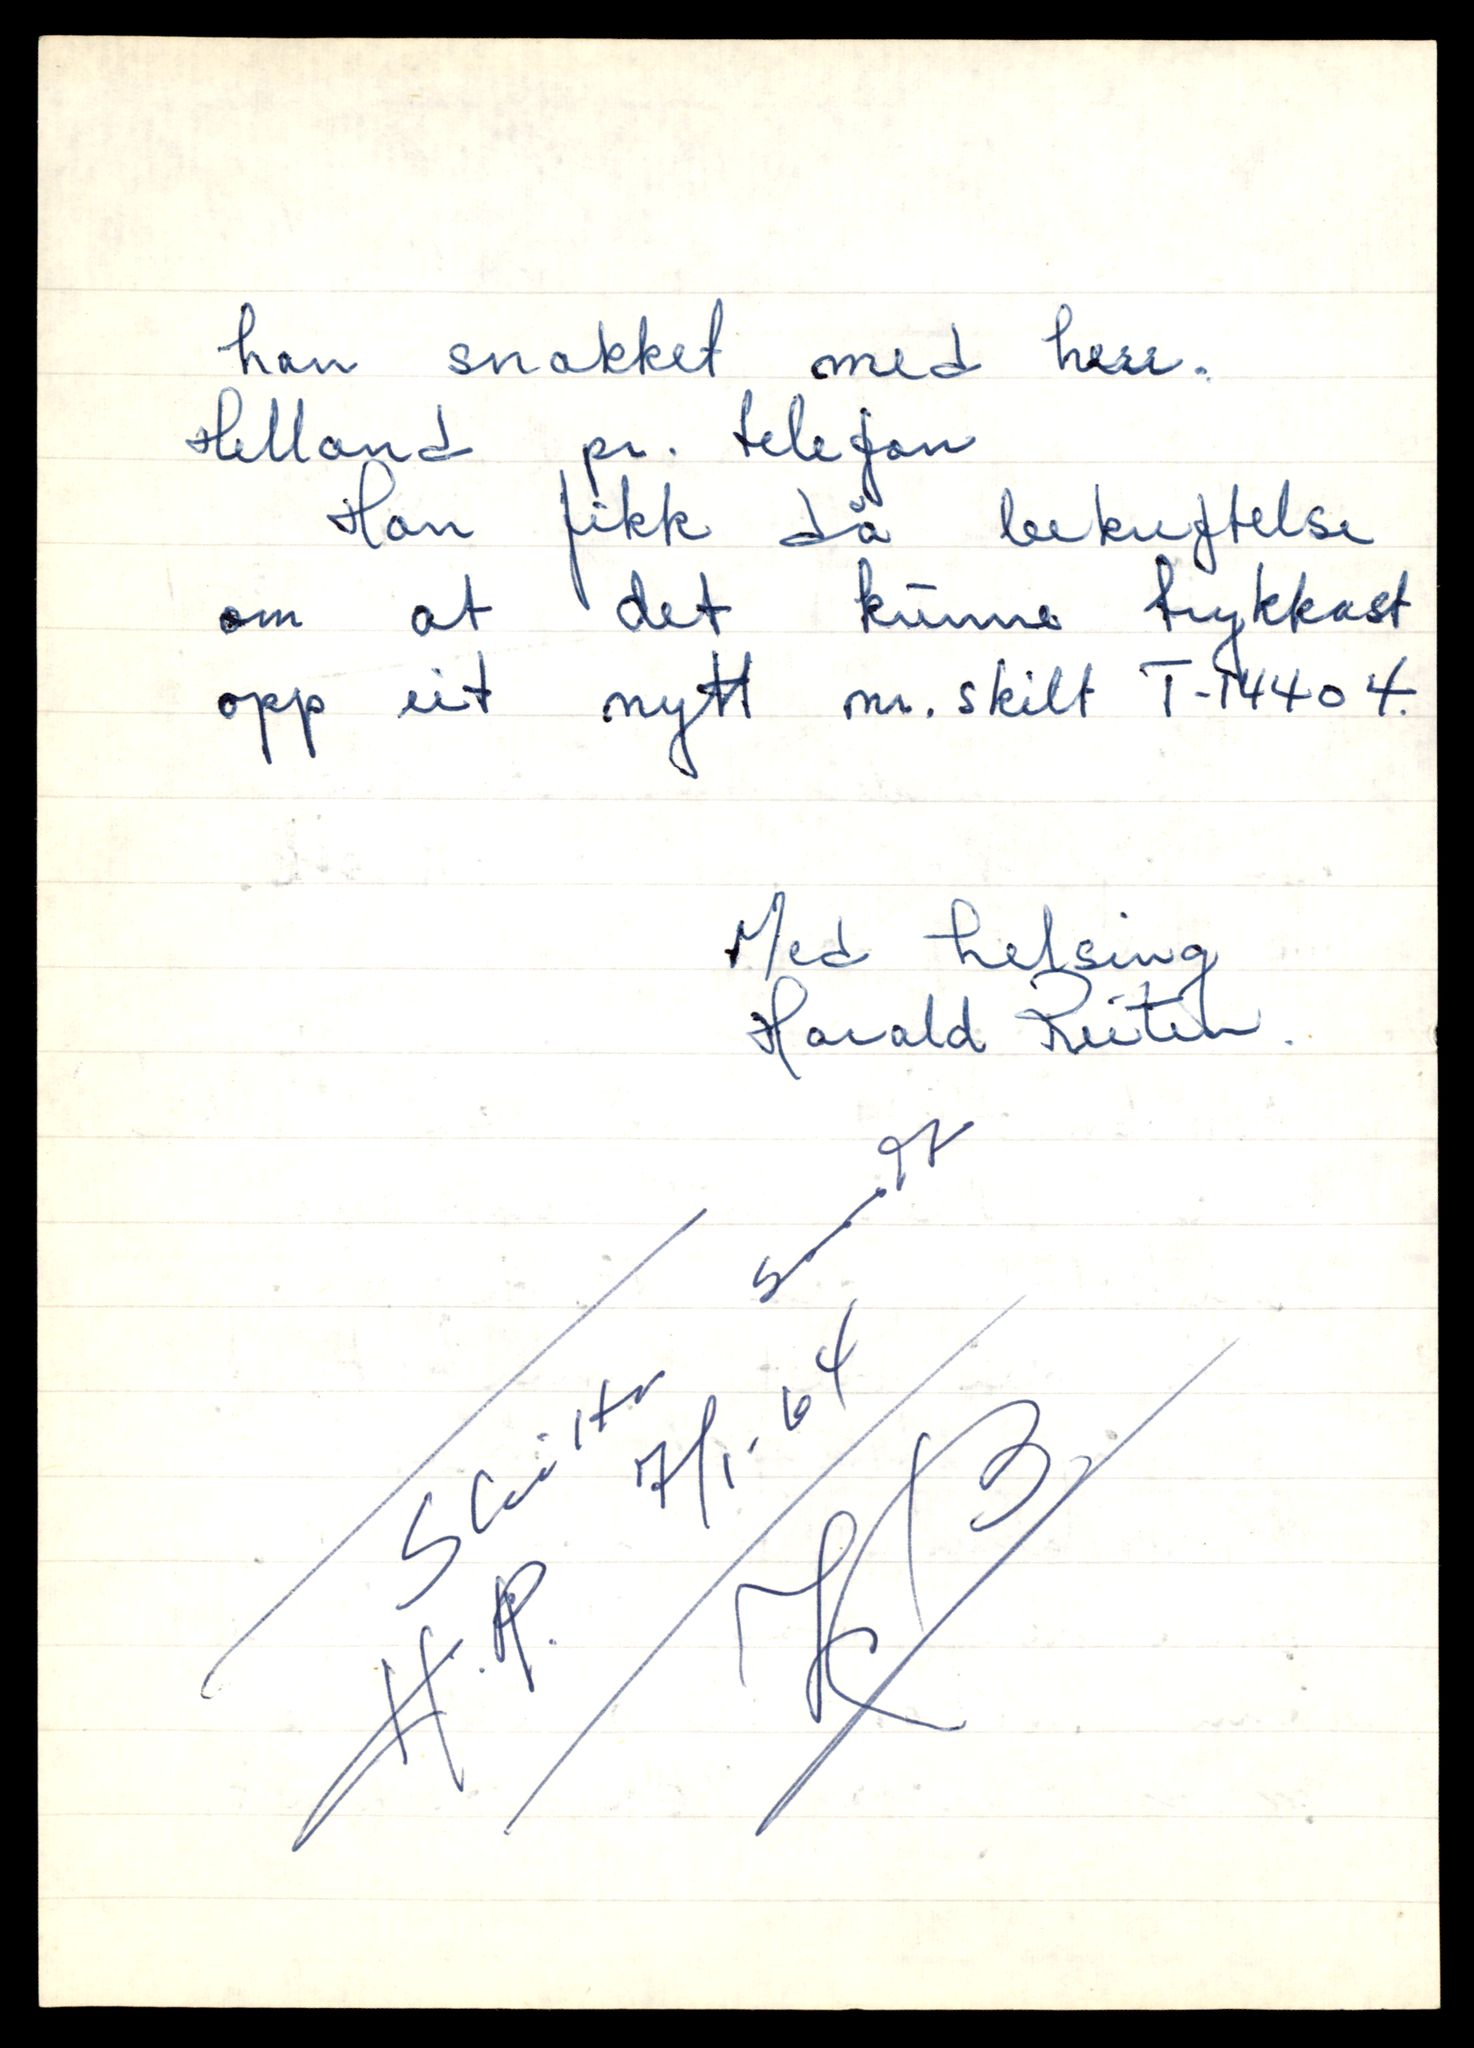 han snakket med herr.
Helland pr. telefon
Han fikk då bekreftelse
om at det kunne trykkast
opp eit nytt nr. skilt T-14404.
Med helsing
Harald Reiten.
7/1-64
H.P.